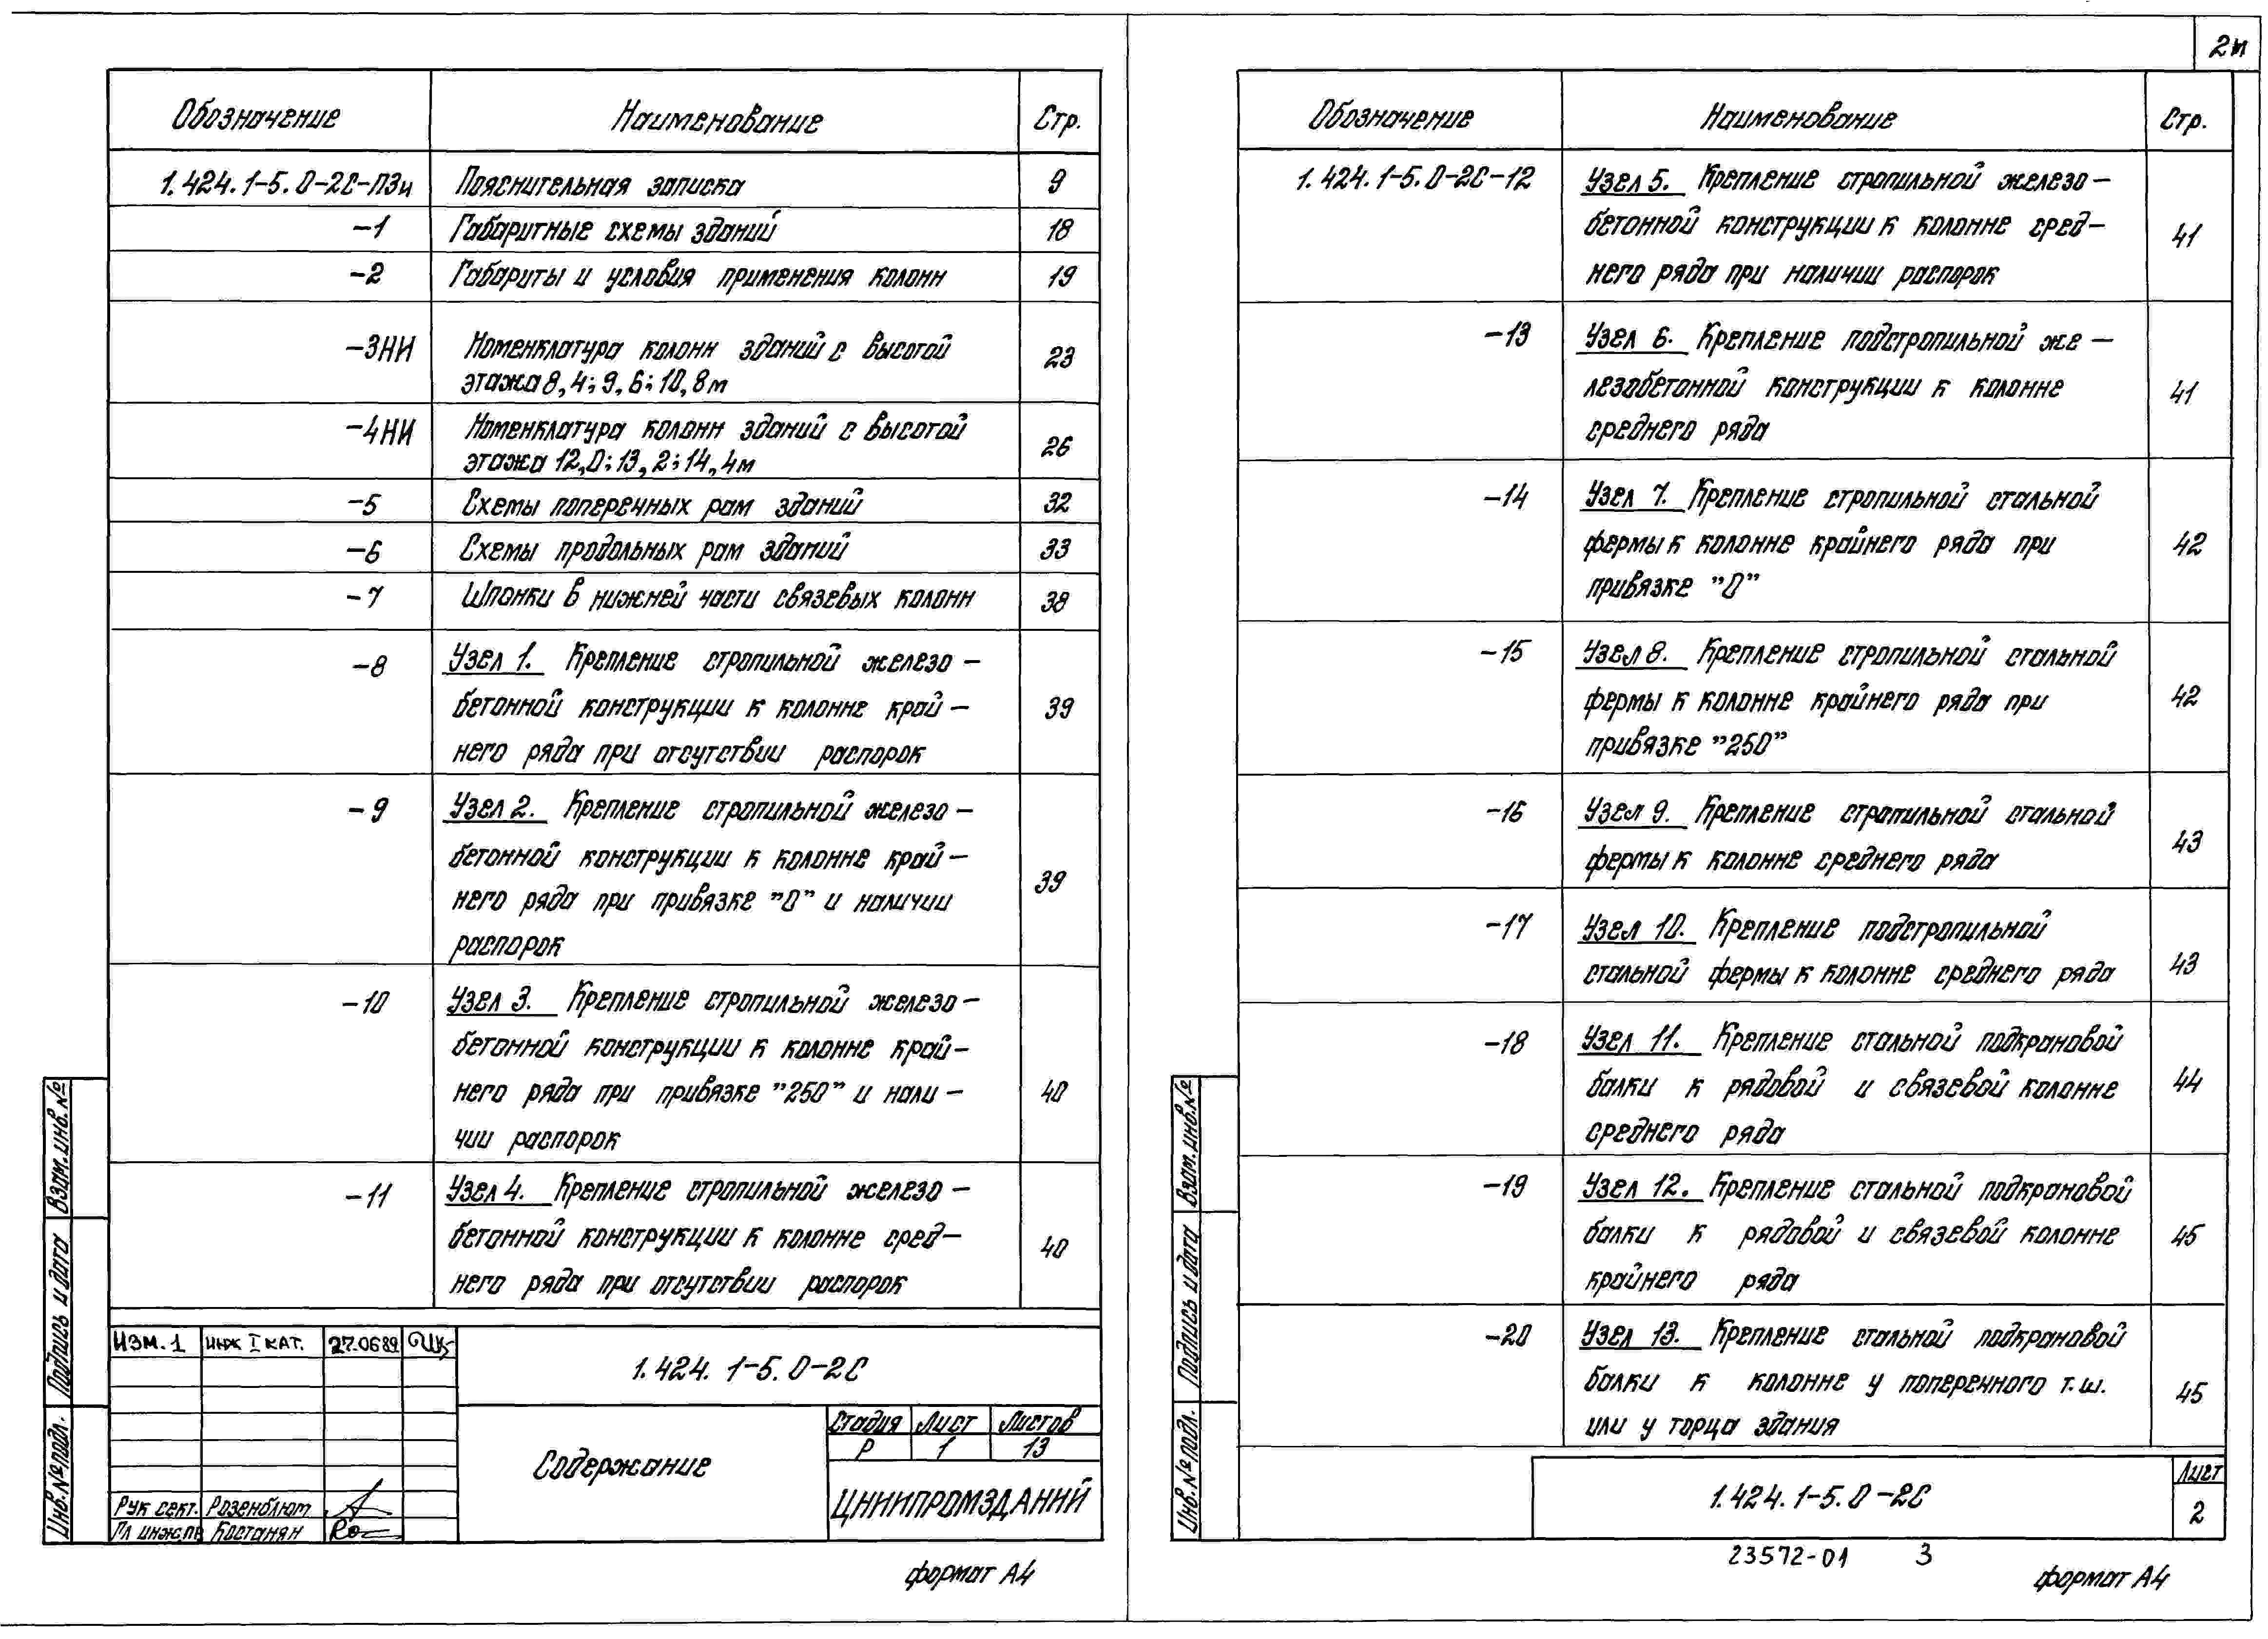 2и
Обозначение Наименование Стр.
1.424.1-5.0-2С-ПЗи Пояснительная записка 9
-1 Габаритные схемы зданий 18
-2 Габариты и условия применения колонн 19
-3НИ Номенклатура колонн зданий с высотой
этажа 8,4; 9,6; 10,8м 23
-4НИ Номенклатура колонн зданий с высотой
этажа 12,0; 13,2; 14,4м 26
-5 Схемы поперечных рам зданий 32
-6 Схемы продольных рам зданий 33
-7 Шпонки в нижней части связевых колонн 38
-8 Узел 1. Крепление стропильной железо-
бетонной конструкции к колонне край- 39
него ряда при отсутствии распорок
-9 Узел 2. Крепление стропильной железо-
бетонной конструкции к колонне край-
него ряда при привязке "0" и наличии 39
распорок
-10 Узел 3. Крепление стропильной железо-
бетонной конструкции к колонне край-
него ряда при привязке "250" и нали- 40
чии распорок
-11 Узел 4. Крепление стропильной железо-
бетонной конструкции к колонне сред- 40
него ряда при отсутствии распорок
Изм.1 инж I кат. 27.06.89
1.424.1-5.0-2С
Содержание
Стадия Лист Листов
Р 1 13
Рук сект. Розенблюм
Гл инж.пр Костанян
ЦНИИПРОМЗДАНИЙ
Взам.инв.№
Подпись и дата
Инв.№подл.
формат А4
Обозначение Наименование Стр.
1.424.1-5.0-2С-12 Узел 5. Крепление стропильной железо-
бетонной конструкции к колонне сред- 41
него ряда при наличии распорок
-13 Узел 6. Крепление подстропильной же-
лезобетонной конструкции к колонне 41
среднего ряда
-14 Узел 7. Крепление стропильной стальной
фермы к колонне крайнего ряда при 42
привязке "0"
-15 Узел 8. Крепление стропильной стальной
фермы к колонне крайнего ряда при 42
привязке "250"
-16 Узел 9. Крепление стропильной стальной
фермы к колонне среднего ряда 43
-17 Узел 10. Крепление подстропильной
стальной фермы к колонне среднего ряда 43
-18 Узел 11. Крепление стальной подкрановой
балки к рядовой и связевой колонне 44
среднего ряда
-19 Узел 12. Крепление стальной подкрановой
балки к рядовой и связевой колонне 45
крайнего ряда
-20 Узел 13. Крепление стальной подкрановой
балки к колонне у поперечного т.ш. 45
или у торца здания
1.424.1-5.0-2С
Лист
2
Взам.инв.№
Подпись и дата
Инв.№подл.
23572-01 3
формат А4